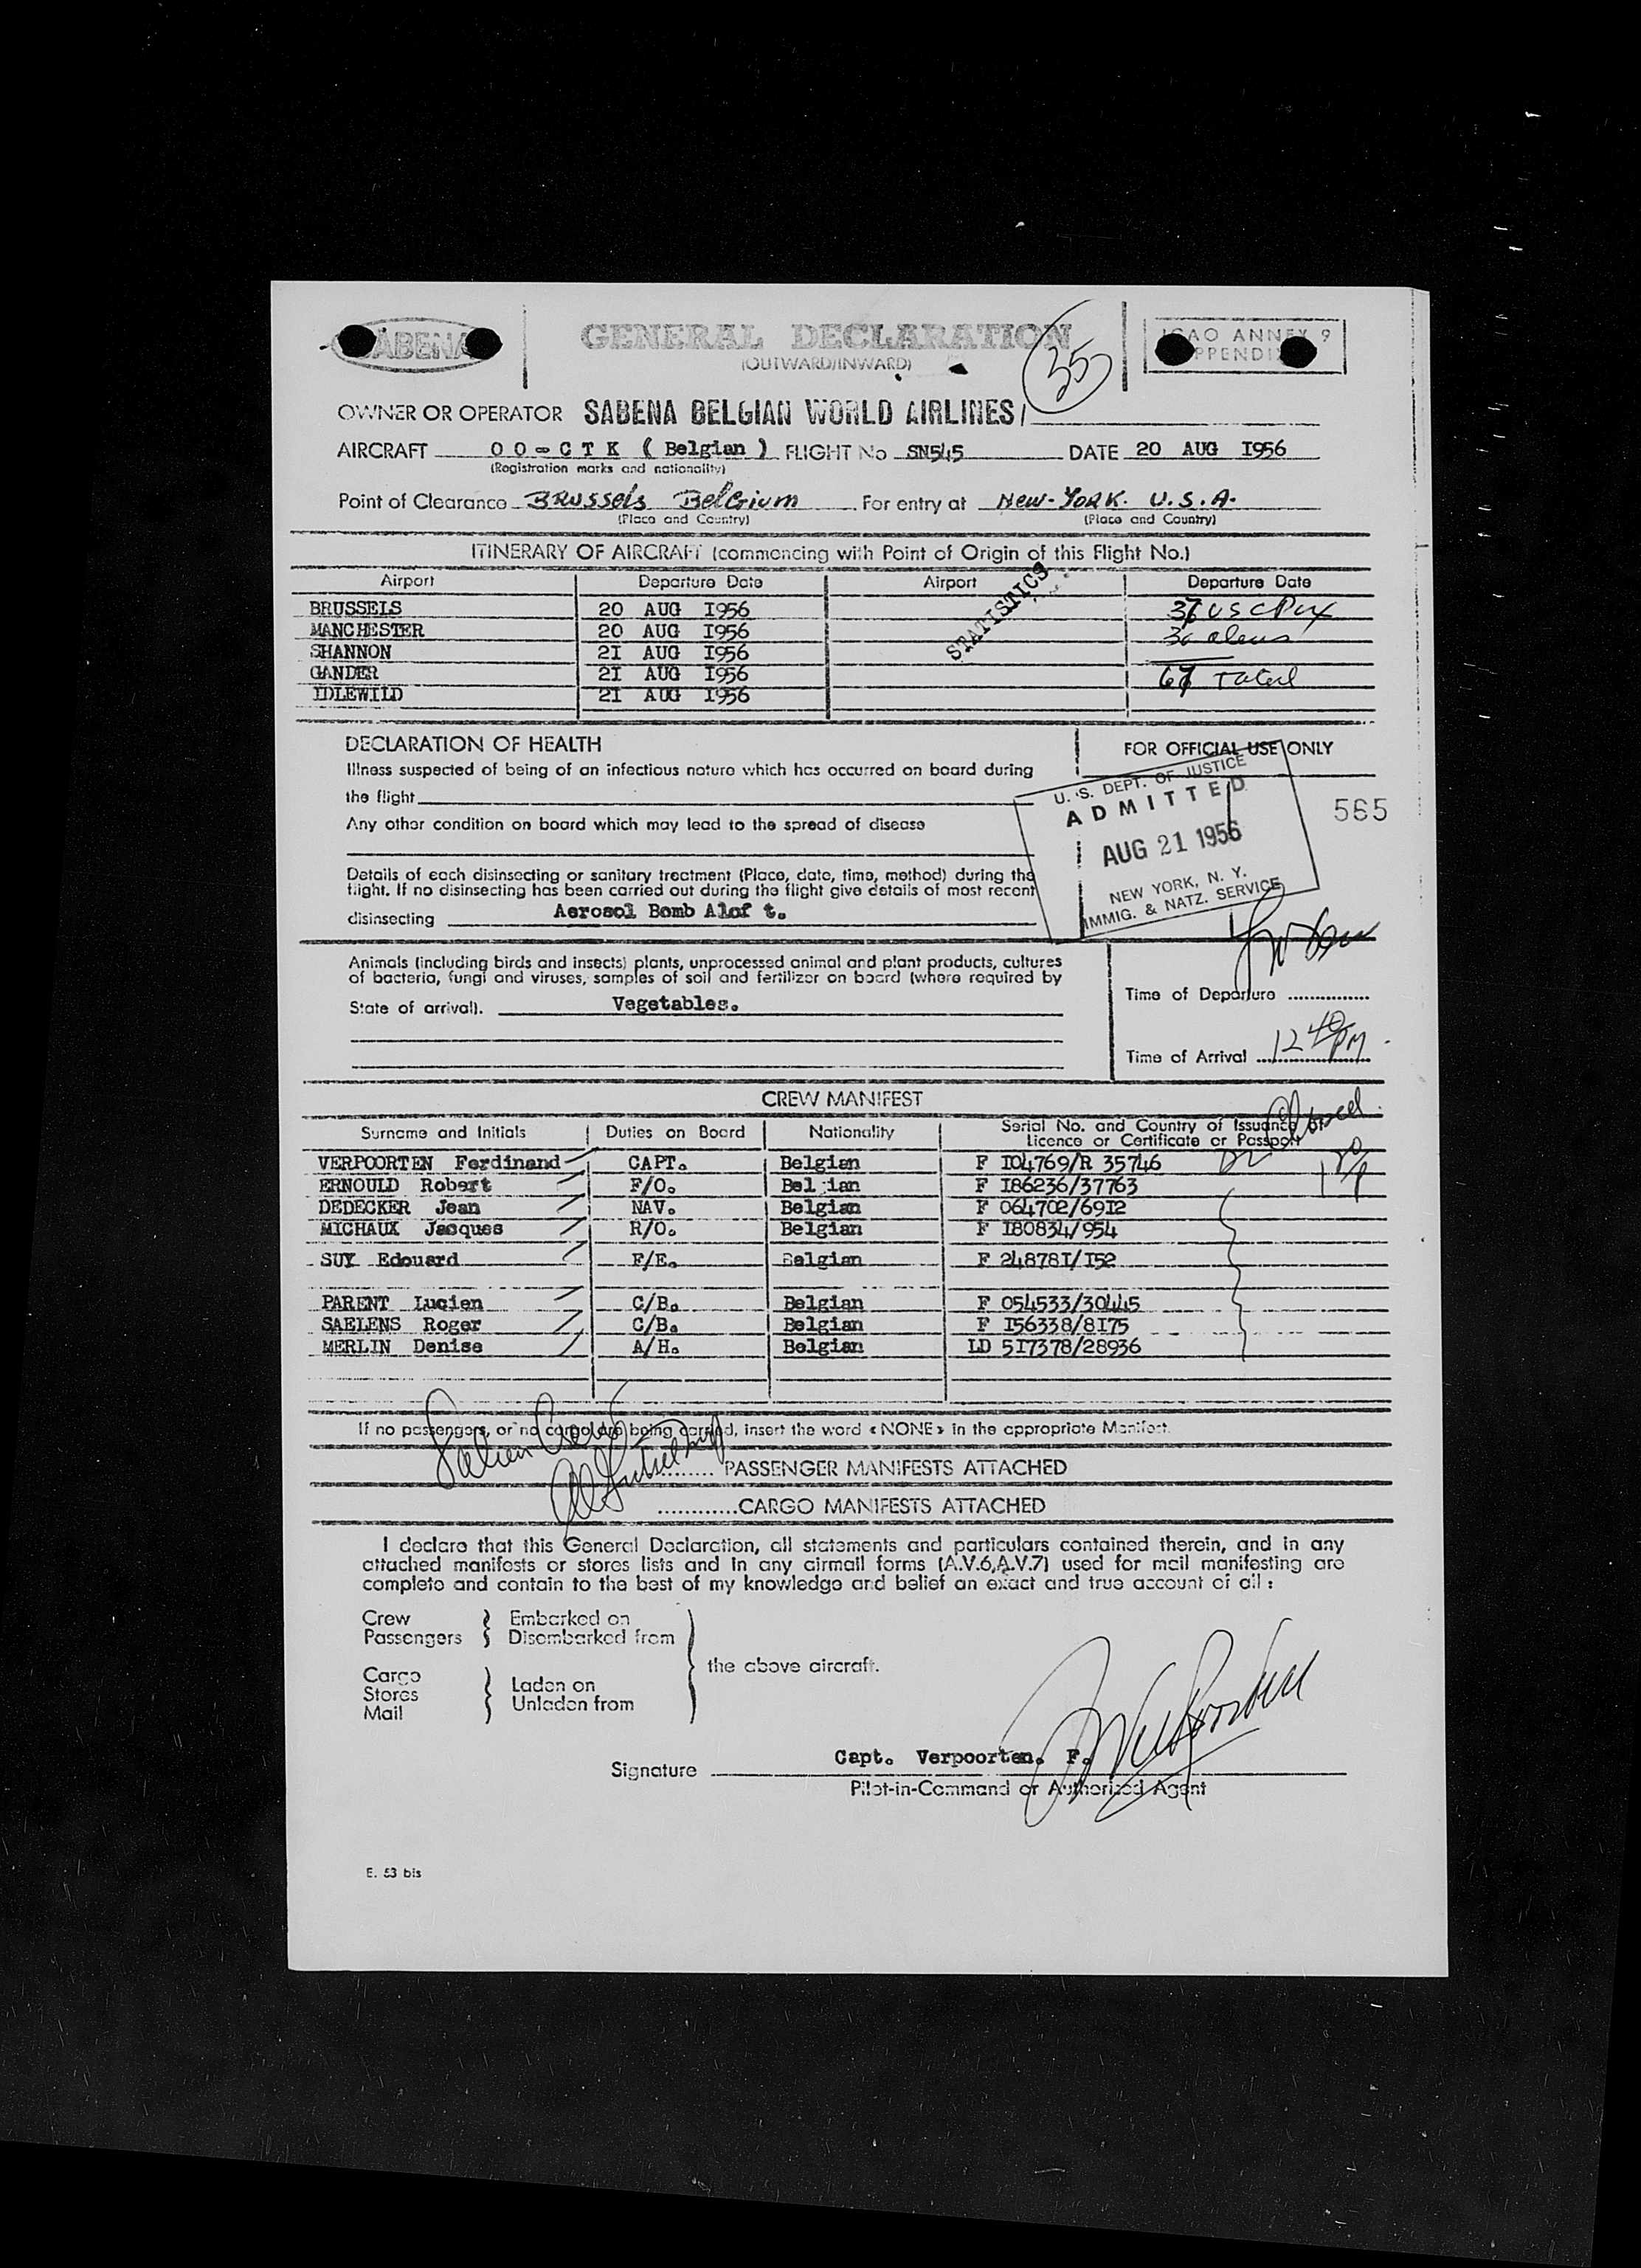 SABENA
GENERAL DECLARATION
(OUTWARD/INWARD)
35
ICAO ANNEX 9
APPENDIX
OWNER OR OPERATOR SABENA BELGIAN WORLD AIRLINES
AIRCRAFT OO-CTK ( Belgian ) FLIGHT No SN545 DATE 20 AUG I956
(Registration marks and nationality)
Point of Clearance Brussels Belgium For entry at New-York. U.S.A.
(Place and Country) (Place and Country)
ITINERARY OF AIRCRAFT (commencing with Point of Origin of this Flight No.)
Airport Departure Date Airport Departure Date
STATISTICS
BRUSSELS 20 AUG I956 37 USC
MANCHESTER 20 AUG I956 30 aliens
SHANNON 2I AUG I956
GANDER 2I AUG I956 67 Total
IDLEWILD 2I AUG I956
DECLARATION OF HEALTH
FOR OFFICIAL USE ONLY
Illness suspected of being of an infectious nature which has occurred on board during
the flight
Any other condition on board which may lead to the spread of disease
U. S. DEPT. OF JUSTICE
ADMITTED
AUG 21 1956
NEW YORK, N. Y.
IMMIG. & NATZ. SERVICE
565
Details of each disinsecting or sanitary treatment (Place, date, time, method) during the
flight. If no disinsecting has been carried out during the flight give details of most recent
disinsecting Aerosol Bomb Alof t.
Animals (including birds and insects) plants, unprocessed animal and plant products, cultures
of bacteria, fungi and viruses, samples of soil and fertilizer on board (where required by
State of arrival). Vegetables.
Time of Departure ...............
Time of Arrival 12 40 PM
CREW MANIFEST
Surname and Initials Duties on Board Nationality Serial No. and Country of Issuance of
Licence or Certificate or Passport
VERPOORTEN Ferdinand CAPT. Belgian F I04769/R 35746
ERNOULD Robert F/O. Bel ian F I86236/37763
DEDECKER Jean NAV. Belgian F 064702/69I2
MICHAUX Jacques R/O. Belgian F I80834/954
SUY Edouard F/E. Belgian F 24878I/I52
PARENT Lucien C/B. Belgian F 054533/30445
SAELENS Roger C/B. Belgian F I56338/8I75
MERLIN Denise A/H. Belgian LD 5I7378/28936
If no passengers, or no cargo are being carried, insert the word « NONE » in the appropriate Manifest.
......... PASSENGER MANIFESTS ATTACHED
............CARGO MANIFESTS ATTACHED
I declare that this General Declaration, all statements and particulars contained therein, and in any
attached manifests or stores lists and in any airmail forms (A.V.6,A.V.7) used for mail manifesting are
complete and contain to the best of my knowledge and belief an exact and true account of all :
Crew Embarked on
Passengers Disembarked from
the above aircraft.
Cargo
Stores Laden on
Mail Unladen from
Capt. Verpoorten. F.
Signature
Pilot-in-Command or Authorized Agent
E. 53 bis